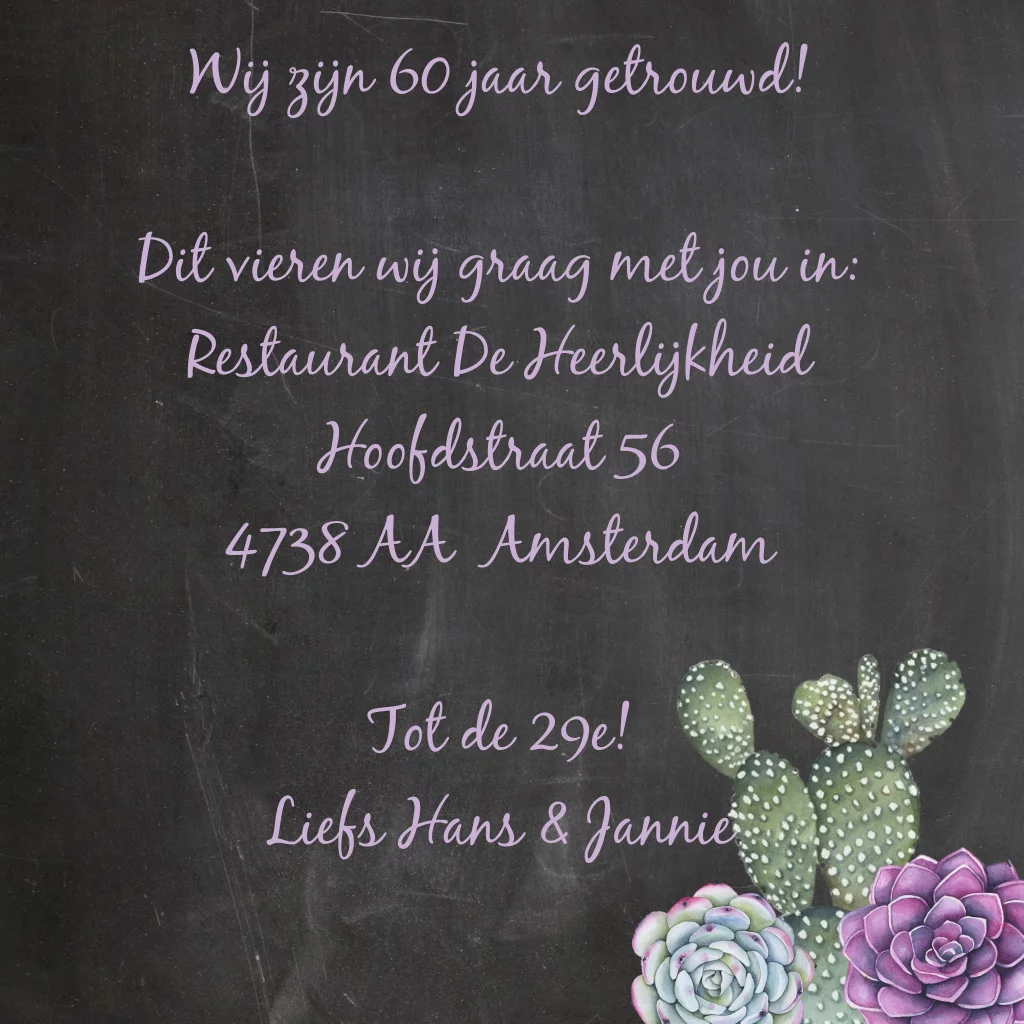 Wij zijn 60 jaar getrouwd!
Dit vieren wij graag met jou in:
Restaurant De Heerlijkheid
Hoofdstraat 56
4738 AA  Amsterdam
Tot de 29e!
Liefs Hans & Jannie